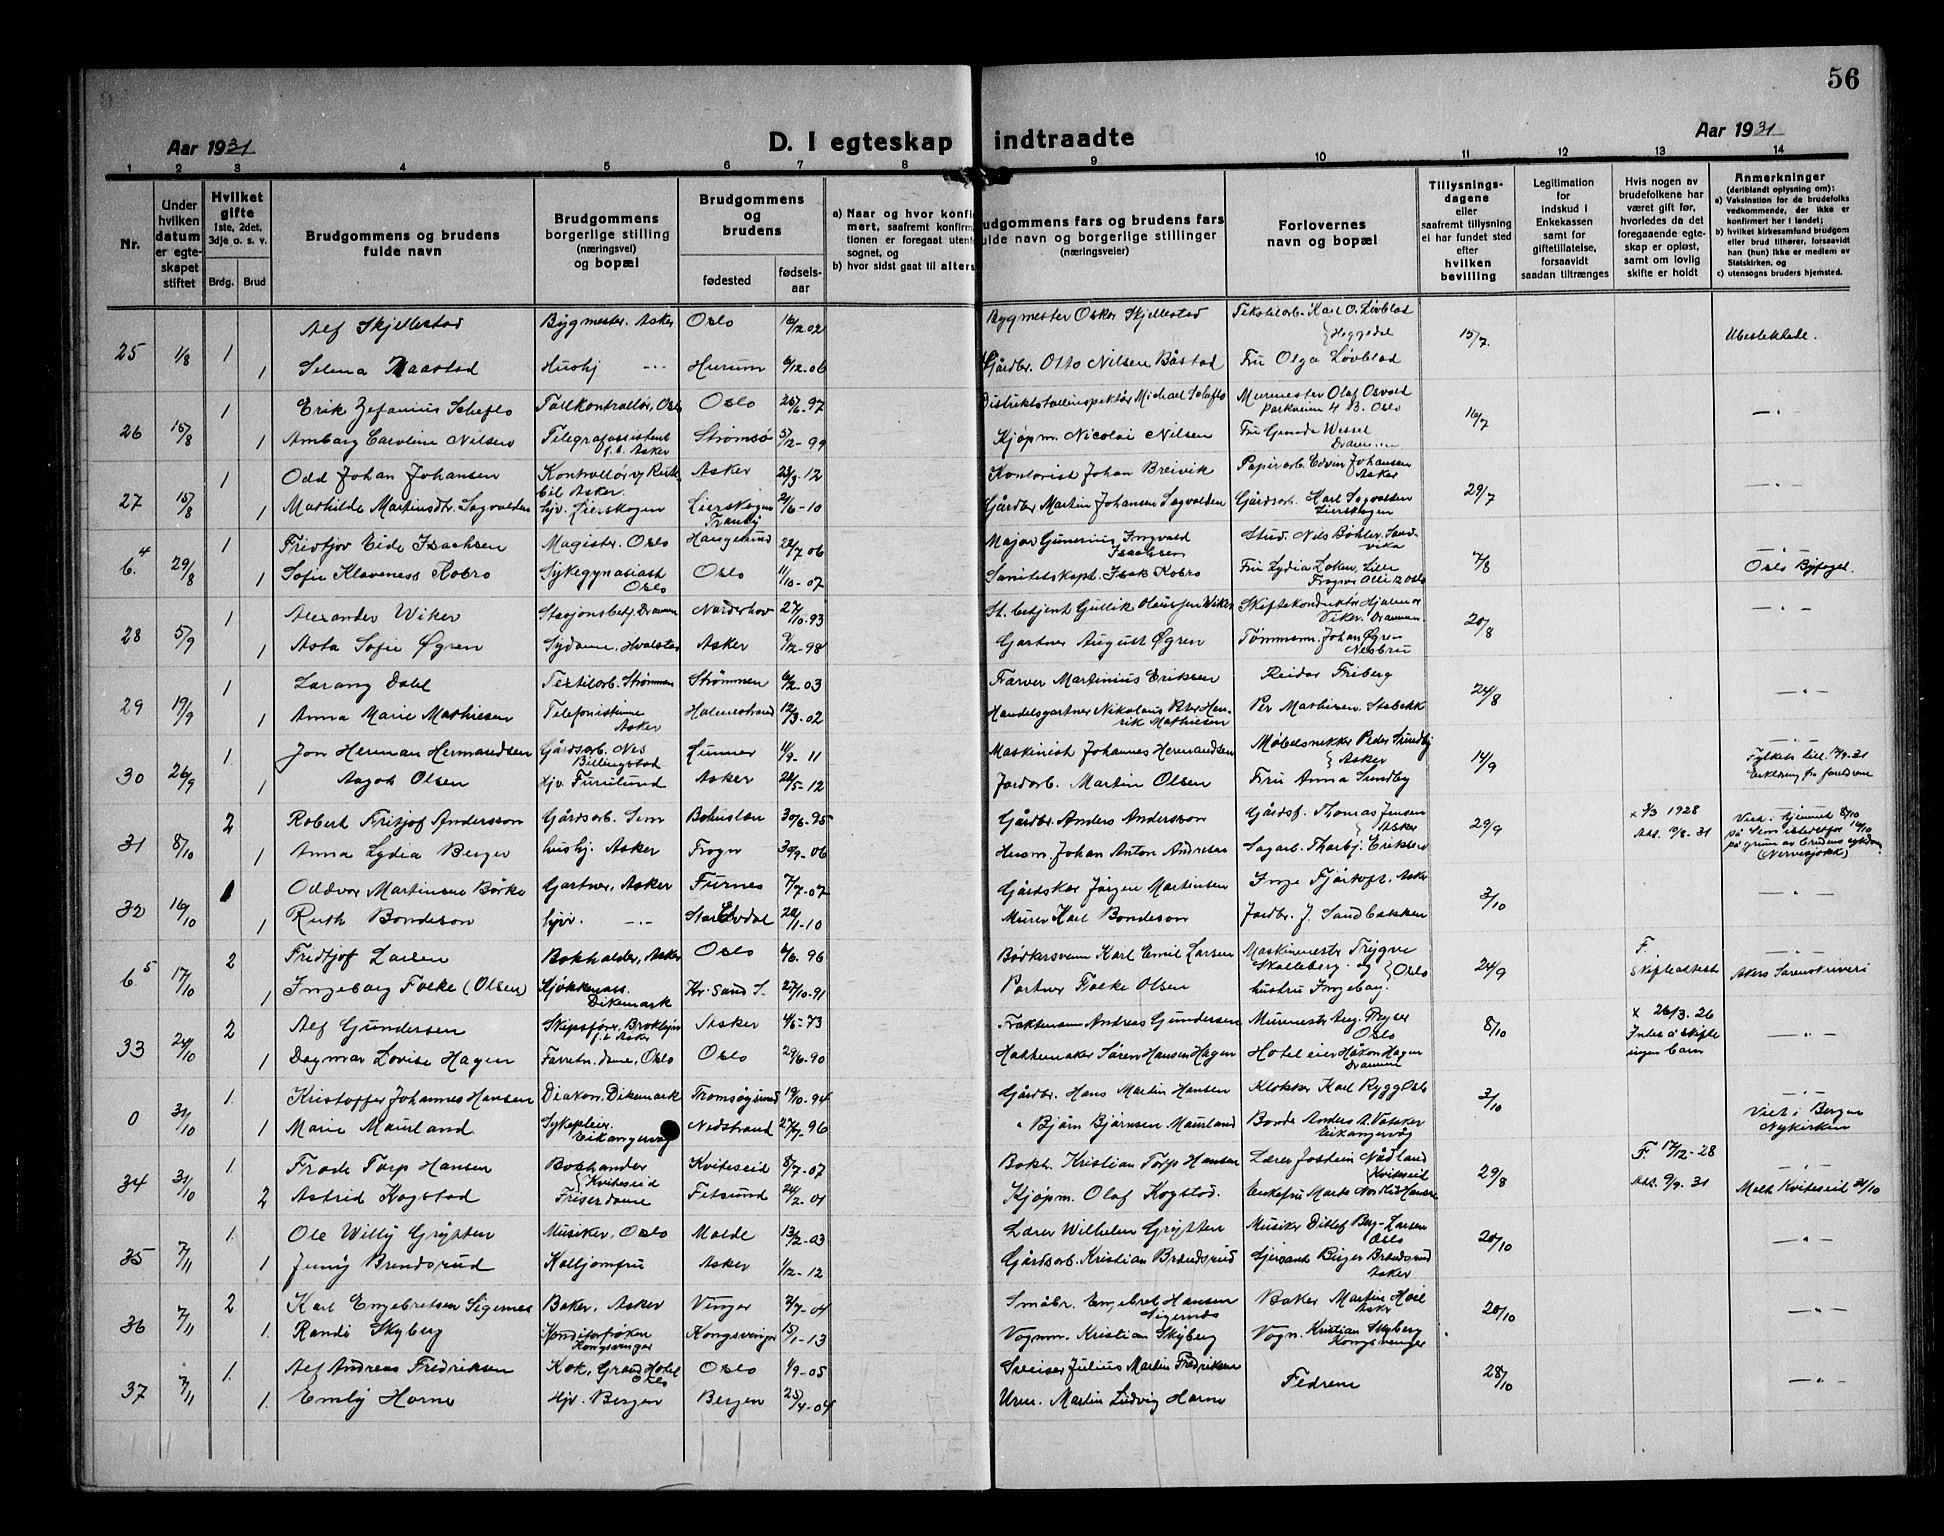 56
Aar 1931
D. I egteskap indtraadte
Aar 1931
1 2 3 4 5 6 7 8 9 10 11 12 13 14
Nr.
Under hvilken datum er egteskapet stiftet
Hvilket gifte 1ste, 2det, 3dje o. s. v.
Brdg. Brud
Brudgommens og brudens fulde navn
Brudgommens borgerlige stilling (næringsvei) og bopæl
Brudgommens og brudens
fødested fødselsaar
a) Naar og hvor konfi
mert, saafremt konfirm
tionen er foregaat utenf
sognet, og
b) hvor sidst gaat til alters
udgommens fars og brudens fars
fulde navn og borgerlige stillinger
(næringsveier)
Forlovernes navn og bopæl
Tillysningsdagene eller saafremt tillysning ei har fundet sted efter hvilken bevilling
Legitimation for indskud i Enkekassen samt for giftetillatelse, forsaavidt saadan tiltrænges
Hvis nogen av brudefolkene har været gift før, hvorledes da det foregaaende egteskap er opløst, samt om lovlig skifte er holdt
Anmerkninger
(deriblandt oplysning om):
a) Vaksination for de brudefolks vedkommende, der ikke er konfirmert her i landet;
b) hvilket kirkesamfund brudgom eller brud tilhører, forsaavidt han (hun) ikke er medlem av Statskirken, og
c) utensogns bruders hjemsted.
Alf Skjellestad Bygmester. Asker Oslo 16/12 02 Bygmester Oskar Skjellestad Karl O. Løvblad
25 1/8 1 Heggedal 15/7 Ubeslektede.
1 Selma Hushj - - - Hurum 6/12-06 Gårdbr. Otto Nilsen Båstad Fru Olga Løvblad
1 Erik Zefanius Tollkontrollør, Oslo Oslo 25/6-97 Distriktstollinspektør Michael Murmester Olaf Osvold
Parkveien 4 B. Oslo
26 15/8 1 Amborg Caroline Nilsen Telegrafassistent Strømsø 5/12-99 Kjøpm. Nicolai Nilsen Fru Gunda Wessel 16/7 - " -
f. t. Asker Drammen
1 Odd Johan Johansen Kontrollør v/ Rute Asker 23/3-12 Kontorist Johan Breivik Papirarb. Edvin Johansen
bil Asker. Asker
27 15/8 1 Mathilde Martinsdtr. Sagvolden hjv. Lierskogen Lierskogen 21/6-10 Gårdbr. Martin Johansen Sagvolden Gårdsarb. Karl Sagvolden 29/7 - " -
Tranby Lierskogen
1 Fridtjov Eide Isachsen Magister. Oslo Haugesund 22/7 06 Major Gunerius Ingvald Stud. Nils Bøhler. Sand-
Isachsen vika
6.4 29/8 1 Sofie Klaveness Kobro Oslo 11/10-07 Sanitetskapt. Isak Kobro Fru Lydia Loken, Lille 7/8 - " -
Oslo Frogner Alle 12 Oslo Oslo Byfogd.
1 Alexander Wiker Stasjonsbetj. Drammen Norderhov 27/10-93 St. betjent Gullik Olaussen Wiker Skiftekonduktør Hjalmar
Viker. Drammen
28 5/9 1 Asta Sofie Øgren Sydame, Hvalstad Asker 9/12-98 Gartner August Øgren Tømmerm. Johan Øgren 20/8 - " -
Nesbru
1 Dahl Textilarb. Strømmen Strømmen 6/2-03 Farver Martinius Eriksen Reidar Friberg
29 19/9 1 Anna Marie Mathiesen Telefonistinne Holmestrand 12/3-02 Handelsgartner Nikolaus Peter Hen- Per Mathiesen. Stabekk 24/8 - " -
Asker rik Mathiesen
1 Jon Herman Hermandsen Gårdsarb. Nes Lunner 4/9-11 Maskinist Johannes Hermandsen Møbelsnekker Peder Sundby - " -
Billingstad Asker
30 26/9 1 Aagot Olsen Hjv. Furulund Asker 22/5-12 Jordarb. Martin Olsen Fru Anna Sundby 14/9
2 Robert Fritjof Andersson Gårdsarb. Sem Bohuslän 30/6-95 Gårdbr. Anders Andersson Gårdsf. Thomas Jensen x 3/3 1928
Asker
31 8/10 1 Anna Lydia Berger hushj. Asker Frogn 30/9-06 Husm. Johan Anton Andresen Sagarb. Thorbj. Eriksen 29/9 (Nervesjokk)
1 Oddvar Martinsen Börke Gartner, Asker Furnes 7/7-07 Gårdskar Jörgen Martinsen Asker - " -
32 16/10 1 Ruth Bondeson hjv. - - - 22/1-10 Murer Karl Bondeson Jordbr. J. Sandbakken 3/10
2 Fridtjof Larsen Bokholder, Asker Oslo 4/6. 96 Bødkersvenn Karl Emil Larsen Maskinmester Trygve F. - " -
Skolleberg og Oslo
6.5 17/10 1 Ingeborg Folke (Olsen) Kjøkkenass. Kr. sand S. 27/10-91 Portner Folke Olsen hustru Ingebog. 24/9 Skifteattest Akers Sorenskriveri
Dikemark
2 Alf Gundersen Skipsfører, Broklyn Asker 4/5-73 Fraktemann Andreas Gundersen Murmester Aug. Fryser x 26/3. 26
f. t. Asker Oslo
33 24/10 1 Dagmar Lovise Hagen Favetn. dame, Oslo Oslo 29/6-90 Hattemaker Sören Hansen Hagen Hotel eier Håkon Hagen 8/10 - " -
Drammen ingen barn
1. Kristoffer Johannes Hansen Diakon, Dikemark Tromsøysund 19/10-94 Gårdbr. Hans Martin Hansen Klokker Karl Rygg Oslo - " -
0 31/10 1 Marie Maurland Sykepleier. Nedstrand 27/7-96 " Bjørn Bjørnsen Maurland Bonde Anders A. 3/10 Viet i Bergen
Eikangervåg Eikangervåg Nykirken
1. Frode Torp Hansen Bokhandler Kviteseid 8/7-07 Bokh. Kristian Torp Hansen Lærer Jostein Nådland F. 17/12-28 - " -
Kviteseid Kviteseid
34 31/10 2 Astrid Kogstad Friserdame Fetsund 24/2-01 Kjøpm. Olaf Kogstad. Enkefru 29/8 Adr. 9/9. 31 Meld. Kviteseid 31/10
1. Ole Willy Grytten Musiker, Oslo Molde 13/2-03 Lærer Wilhelm Grytten Musiker Ditlef Berg-Larsen
Oslo
35 7/11 1 Jenny Brendsrud Asker 1/12-12 Gårdsarb. Kristian Brændsrud Birger Brændsrud 20/10 - " -
Asker
2 Karl Engebretsen Sigernes Baker, Asker Vinger 2/7-04 Småbr. Engebret Hansen Baker Martin Hoel
Sigernes Asker
36 7/11 1. Randi Skyberg Kongsvinger 15/1-13 Vognm. Kristian Skyberg Vogn. Kristian Skyberg 20/10 - " -
Kongsvinger Kongsvinger
1. Alf Andreas Fredriksen Kok, Grand Hotel Oslo 1/9-05 Sveiser Julius Martin Fredriksen
Oslo Fedrene
37 7/11 1. Emly Horne Hjv. Bergen Bergen 25/4-04 Urm. Martin Ludvig Horne 28/10 - " -